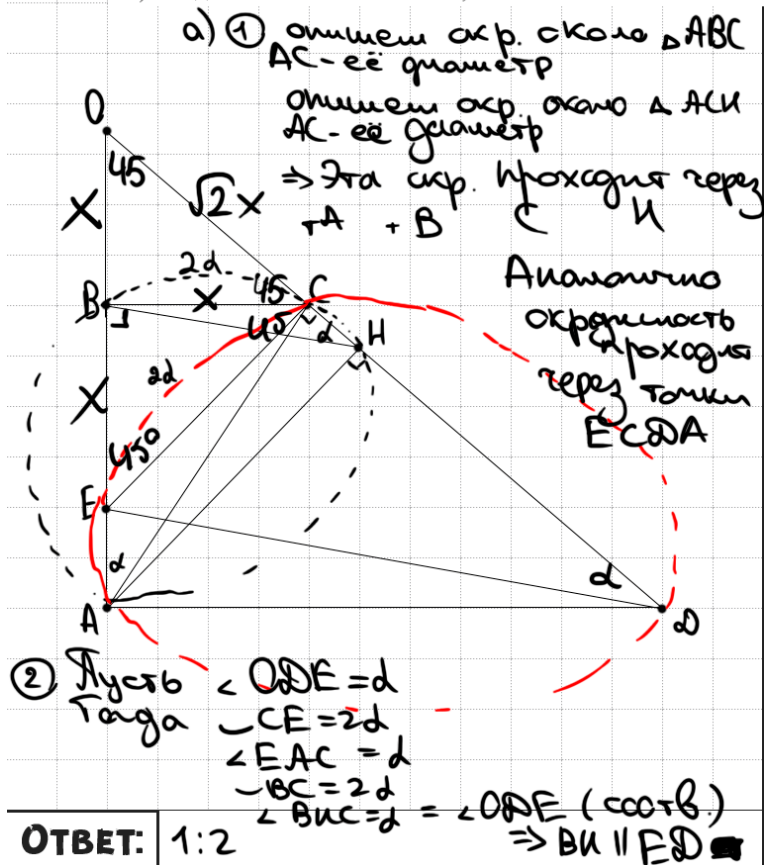 а) ① опишем окр. около △ABC
AC - её диаметр
опишем окр. около △ ACH
AC - её диаметр
⇒ Эта окр. проходит через
тA тB C H
Аналогично
окружность
проходит
через точки
ECDA
O
45
X
√2x
2α
B
x
45
C
45
α
H
2α
X
45°
E
α
α
A
D
② Пусть ∠ODE = α
Тогда ⌣CE = 2α
∠EAC = α
⌣BC = 2α
∠BHC = α = ∠ODE (соотв.)
⇒ BH || ED
ОТВЕТ: 1:2